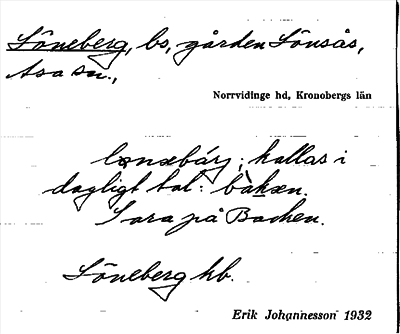 Löneberg, bs, gården Lönsås,
Asa sn.,
Norrvidinge hd, Kronobergs län
lønəbárj; kallas i
dagligt tal: bàkæn.
Sara på Backen.
Löneberg kb.
Erik Johannesson 1932